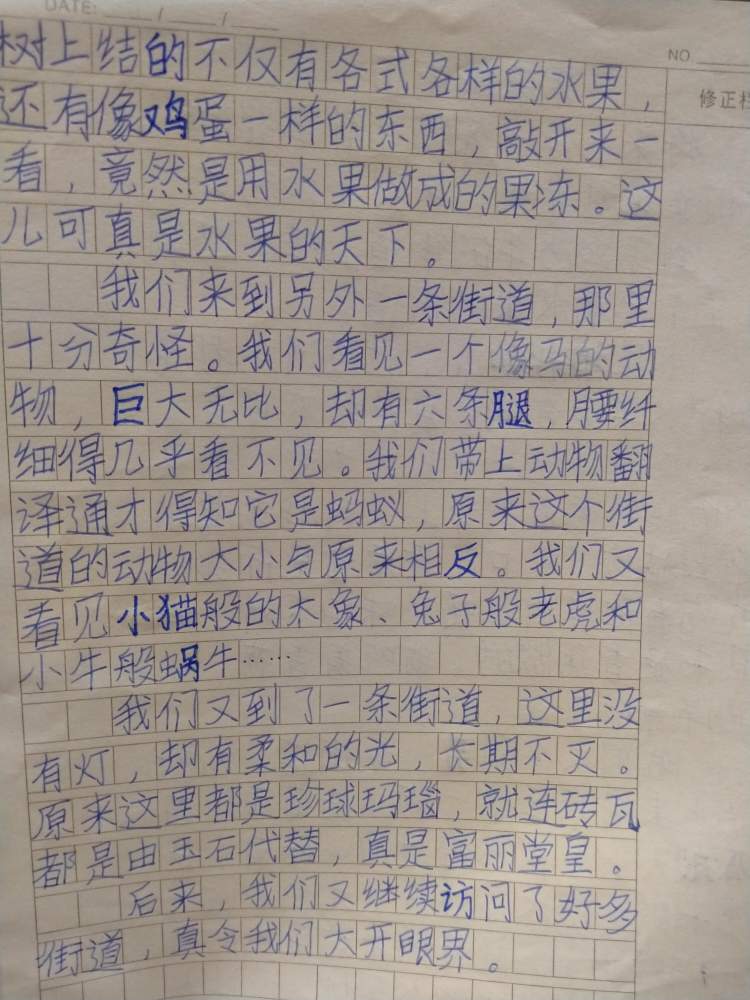 DATE: ___/___/___
NO
修正栏
树上结的不仅有各式各样的水果，
还有像鸡蛋一样的东西，敲开来一
看，竟然是用水果做成的果冻。这
儿可真是水果的天下。
我们来到另外一条街道，那里
十分奇怪。我们看见一个像马的动
物，巨大无比，却有六条腿，腰纤
细得几乎看不见。我们带上动物翻
译通才得知它是蚂蚁，原来这个街
道的动物大小与原来相反。我们又
看见小猫般的大象、兔子般老虎和
小牛般蜗牛……
我们又到了一条街道，这里没
有灯，却有柔和的光，长期不灭。
原来这里都是珍球玛瑙，就连砖瓦
都是由玉石代替，真是富丽堂皇。
后来，我们又继续访问了好多
街道，真令我们大开眼界。